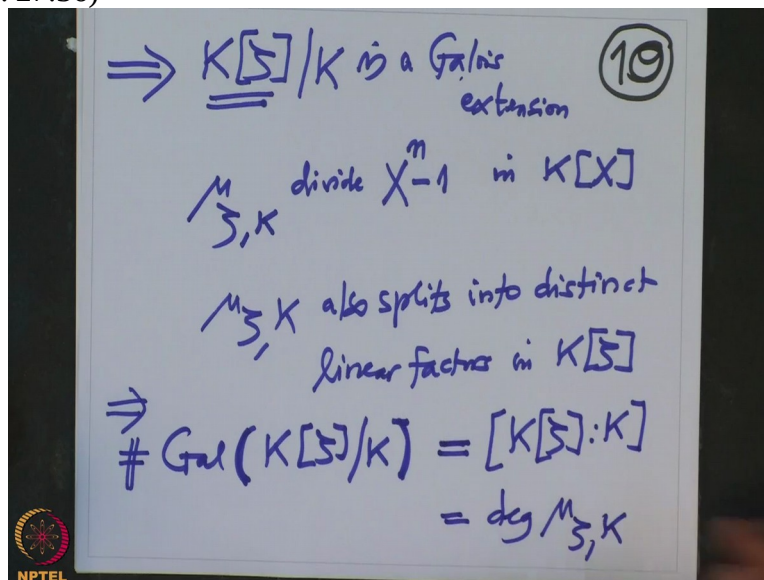 ⇒ K[ζ]/K is a Galois
extension
19
μ_{ζ,K} divide X^n-1 in K[X]
μ_{ζ,K} also splits into distinct
linear factors in K[ζ]
⇒
# Gal(K[ζ]/K) = [K[ζ]:K]
= deg μ_{ζ,K}
NPTEL